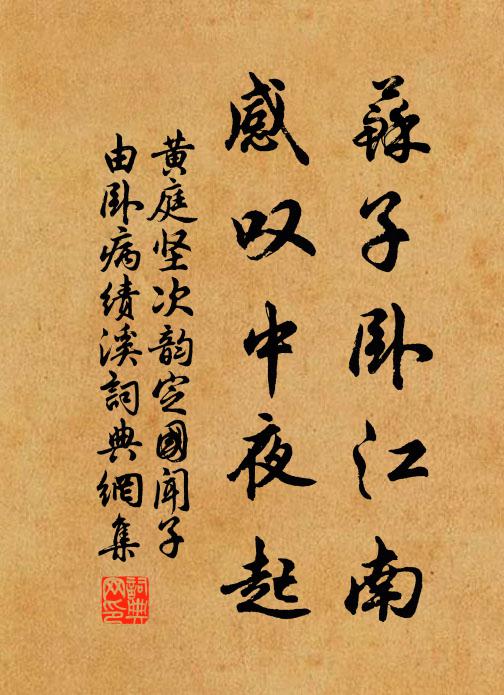 蘇子卧江南
感叹中夜起
黄庭坚次韵定國闻子
由卧病绩溪詞典網集
詞典
网印